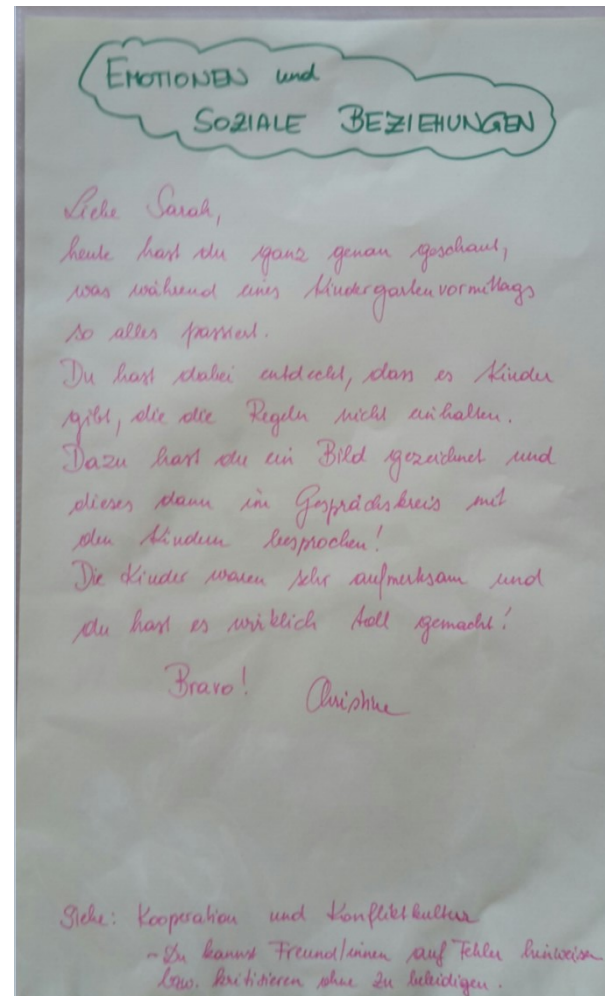 EMOTIONEN und
SOZIALE BEZIEHUNGEN
Liebe Sarah,
heute hast du ganz genau geschaut,
was während eines Kindergartenvormittags
so alles passiert.
Du hast dabei entdeckt, dass es Kinder
gibt, die die Regeln nicht einhalten.
Dazu hast du ein Bild gezeichnet und
dieses dann im Gesprächskreis mit
den Kindern besprochen!
Die Kinder waren sehr aufmerksam und
du hast es wirklich toll gemacht!
Bravo! Christine
Siehe: Kooperation und Konfliktkultur
- Du kannst Freund/innen auf Fehler hinweisen
bzw. kritisieren ohne zu beleidigen.